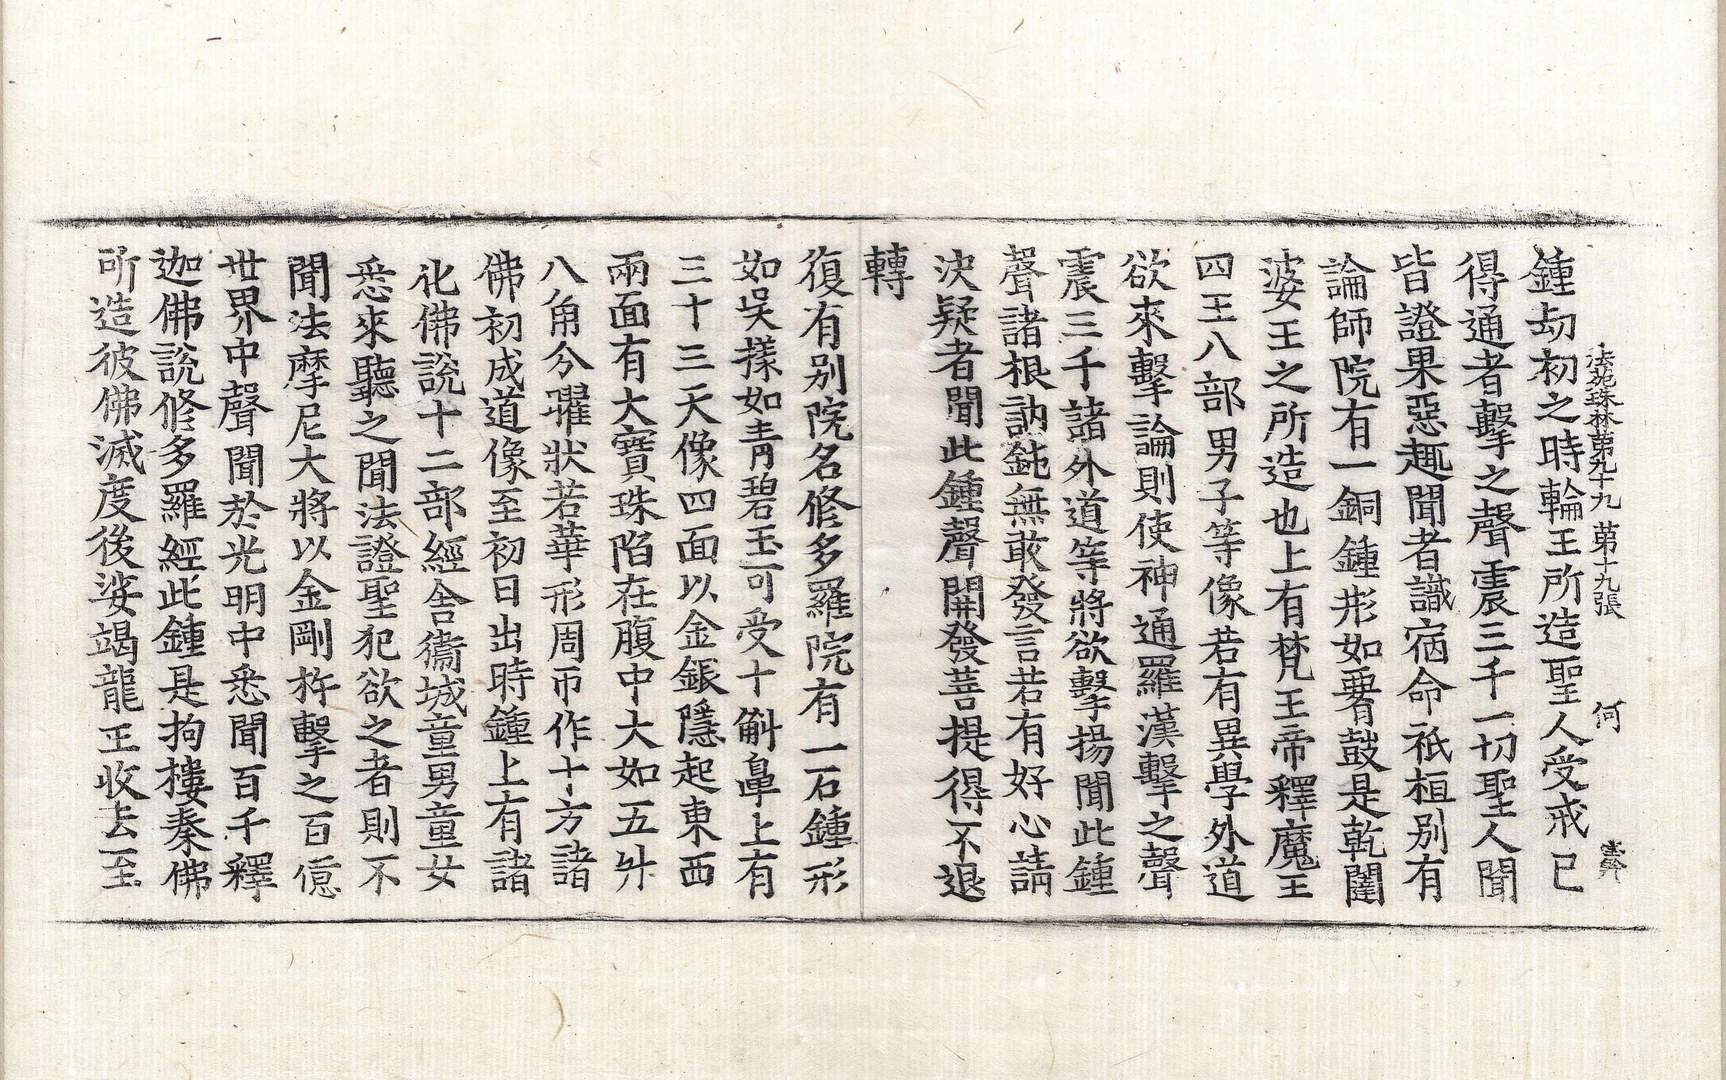 法苑珠林第九十九 第十九張 何
鍾劫初之時輪王所造聖人受戒已
得通者擊之聲震三千一切聖人聞
皆證果惡趣聞者識宿命祇桓別有
論師院有一銅鍾形如𦝫鼓是乾闥
婆王之所造也上有梵王帝釋魔王
四王八部男子等像若有異學外道
欲來擊論則使神通羅漢擊之聲
震三千諸外道等將欲擊揚聞此鍾
聲諸根訥鈍無敢發言若有好心請
決疑者聞此鍾聲開發菩提得不退
轉
復有別院名修多羅院有一石鍾形
如吳㨾如青碧玉可受十斛鼻上有
三十三天像四面以金銀隱起東西
兩面有大寶珠陷在腹中大如五升
八角分曜狀若華形周帀作十方諸
佛初成道像至初日出時鍾上有諸
化佛說十二部經舍衞城童男童女
悉來聽之聞法證聖犯欲之者則不
聞法摩尼大將以金剛杵擊之百億
世界中聲聞於光明中悉聞百千釋
迦佛說修多羅經此鍾是拘樓秦佛
所造彼佛滅度後娑竭龍王收去至